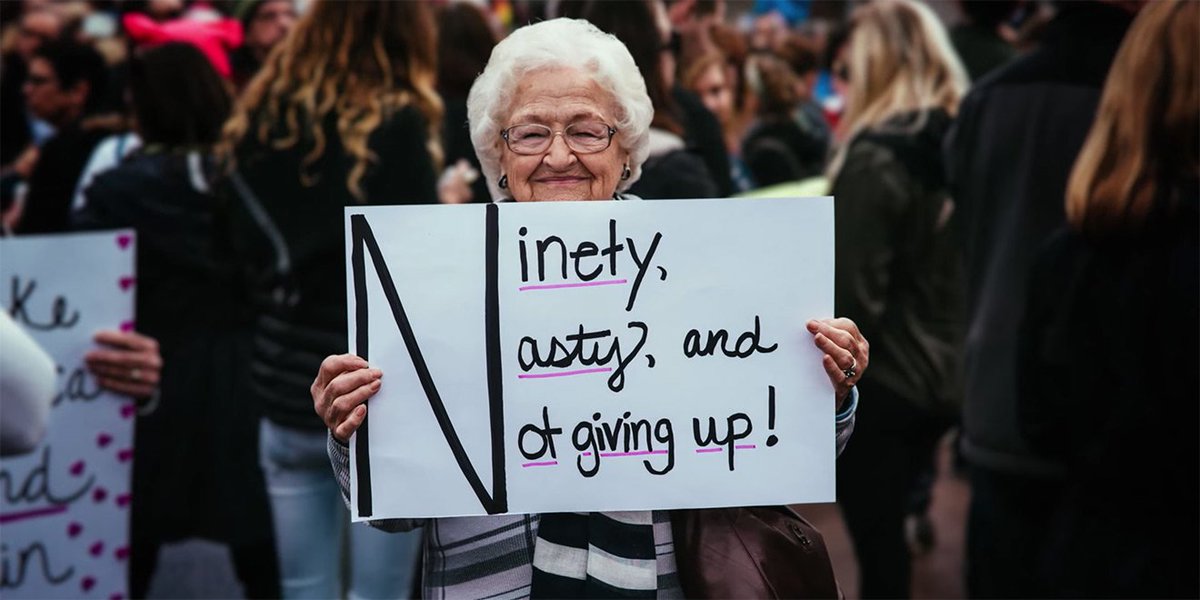 Ninety,
Nasty, and
Not giving up!
ke
nd
in